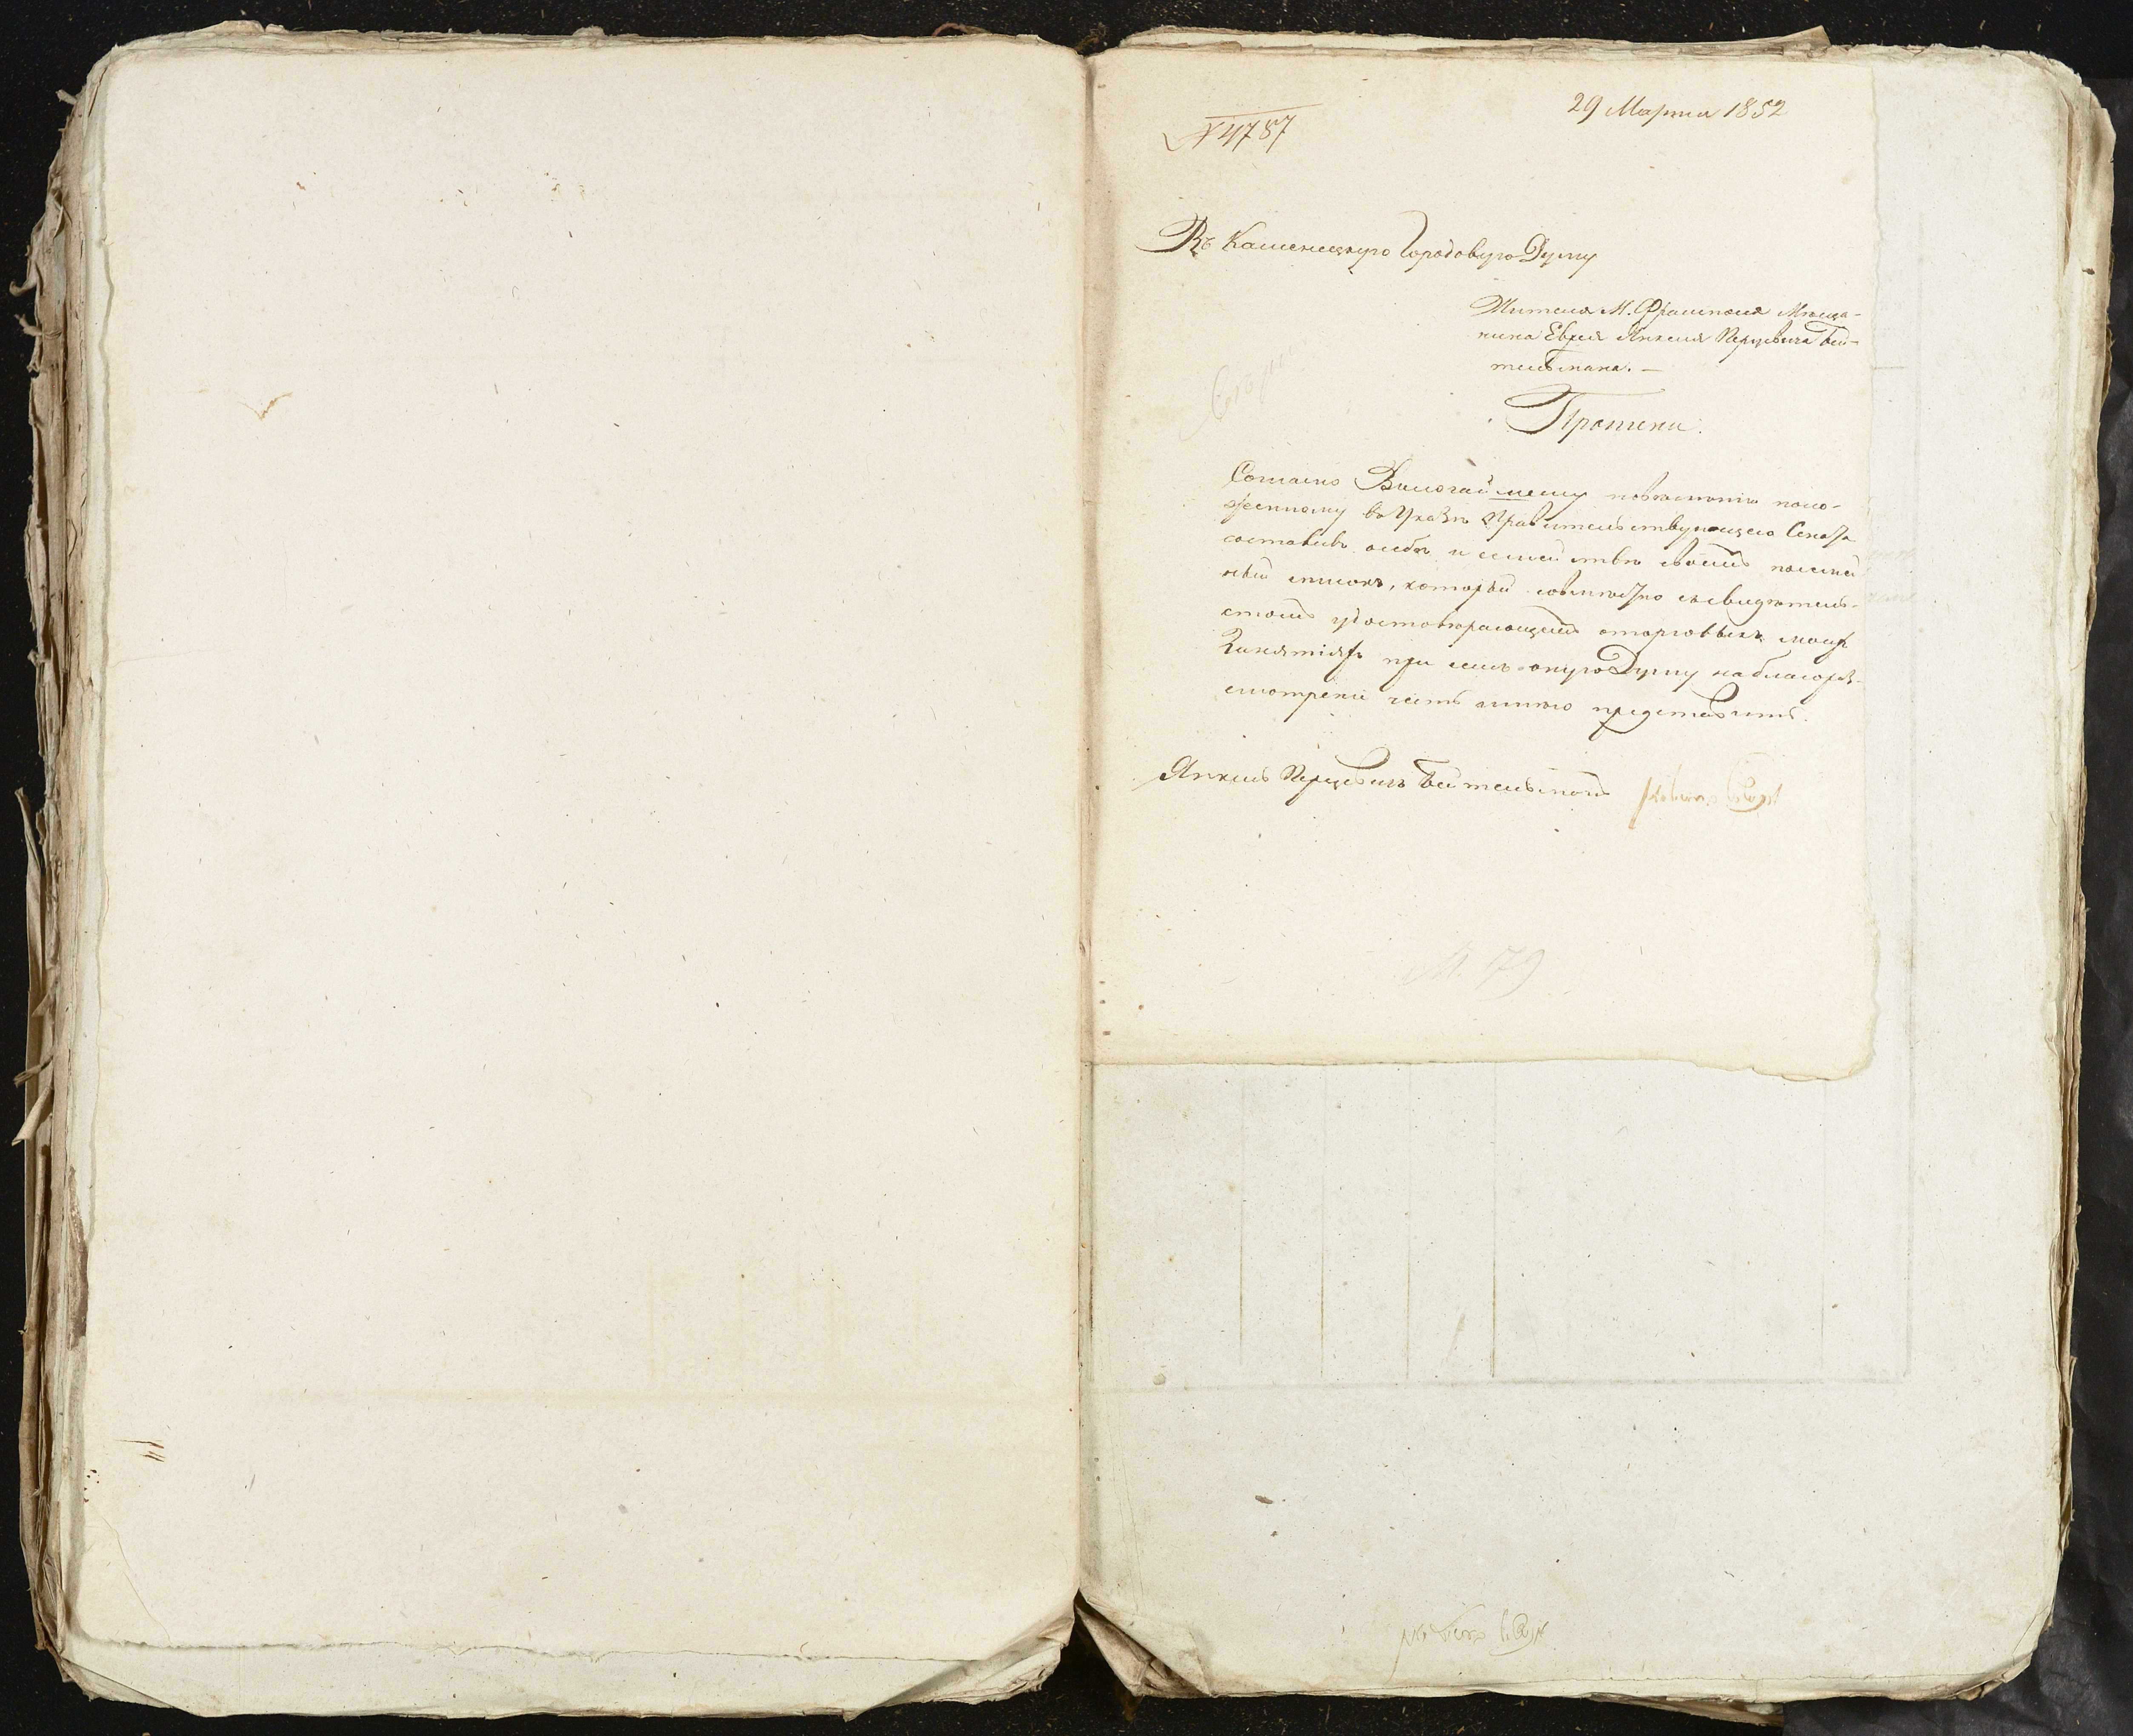 29 Марта 1852
№ 4787
Въ Каменецкую Городовую Думу
Жителя М. Фрамполя Мѣща-
нина Еврея Янкеля Перцовича Бей-
тельмана. —
Прошени.
Согласно Височайшему повѣленію изло-
женному въ Указѣ Правительствующего Сената
составивъ о себѣ и семействѣ своемъ посемей
ный списокъ, который совмѣстно съ свидѣтель-
ствомъ удостовѣрающимъ о торговыхъ моихъ
Занятіяхъ при семъ оную Думу на благораз-
смотрени честь имѣю представить.
Янкель Перцовичъ Бейтельманъ
М. 79